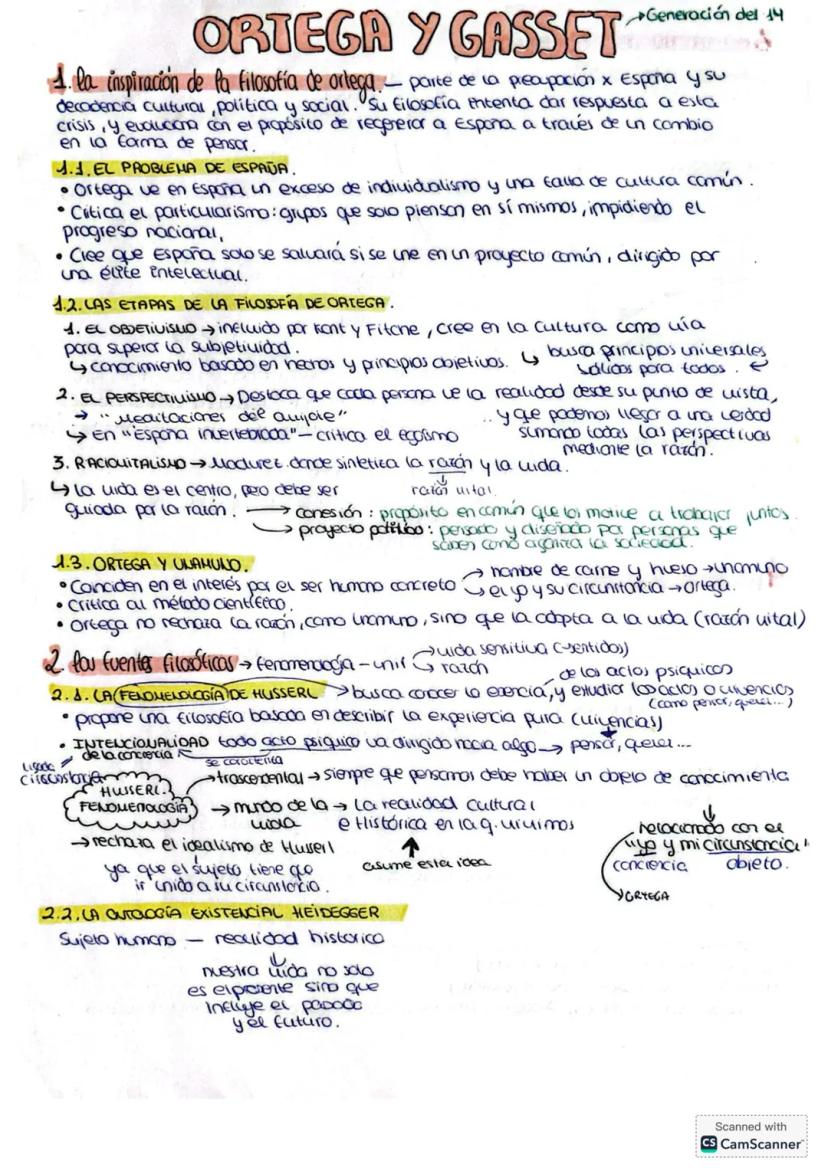 ORTEGA Y GASSET → Generación del 14
1. La inspiración de la filosofía de ortega. — parte de la preocupación x España y su
decadencia cultural, política y social. Su filosofía intenta dar respuesta a esta
crisis, y evoluciona con el propósito de regenerar a España a través de un cambio
en la forma de pensar.
1.1. EL PROBLEMA DE ESPAÑA.
• Ortega ve en España un exceso de individualismo y una falta de cultura común.
• Critica el particularismo: grupos que solo piensan en sí mismos, impidiendo el
progreso nacional.
• Cree que España solo se salvará si se une en un proyecto común, dirigido por
una élite intelectual.
1.2. LAS ETAPAS DE LA FILOSOFÍA DE ORTEGA.
1. EL OBJETIVISMO → incluido por Kant y Fitche, cree en la cultura como vía
para superar la subjetividad.
↳ busca principios universales
sólidos para todos.
↳ conocimiento basado en hechos y principios objetivos.
2. EL PERSPECTIVISMO → Destaca que cada persona ve la realidad desde su punto de vista,
→ "Meditaciones del quijote"
... y que podemos llegar a una verdad
sumando todas las perspectivas
mediante la razón.
↳ En "España invertebrada" — critica el egoísmo
3. RACIOVITALISMO → Madurez. donde sintetiza la razón y la vida.
razón vital
↳ la vida es el centro, pero debe ser
guiada por la razón.
→ conesión: propósito en común que los motive a trabajar juntos.
→ proyecto político: pensado y diseñado por personas que
saben como organiza la sociedad.
1.3. ORTEGA Y UNAMUNO.
• Coinciden en el interés por el ser humano concreto
→ hombre de carne y hueso → unamuno
→ el yo y su circunstancia → ortega.
• Crítica al método científico.
• Ortega no rechaza la razón, como unamuno, sino que la adapta a la vida (razón vital)
2. Las fuentes filosóficas → fenomenología - unir
→ vida sensitiva (sentidos)
→ razón
2.1. LA FENOMENOLOGÍA DE HUSSERL → busca conocer la esencia, y estudiar los actos o vivencias
de los actos psiquicos
(como pensar, querer...)
• propone una filosofía basada en describir la experiencia pura (vivencias)
• INTENCIONALIDAD todo acto psiquico va dirigido hacia algo → pensar, querer...
de la conciencia
se caracteriza
ligada
circunstancia
HUSSERL.
FENOMENOLOGÍA
→ trascendental → siempre que pensamos debe haber un objeto de conocimiento
→ mundo de la vida → La realidad cultural
e Histórica en la q. vivimos
asume esta idea
→ rechaza el idealismo de Husserl
ya que el sujeto tiene que
ir unido a su circunstancia.
relacionado con el
"yo y mi circunstancia"
conciencia objeto.
→ ORTEGA
2.2. LA ONTOLOGÍA EXISTENCIAL HEIDEGGER
Sujeto humano — realidad historica
nuestra vida no solo
es el presente sino que
incluye el pasado
y el futuro.
Scanned with
CS CamScanner